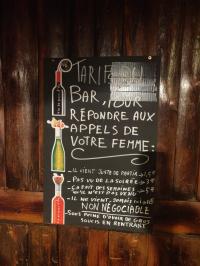 TARIF DU
BAR, POUR
RÉPONDRE AUX
APPELS DE
VOTRE FEMME:
- IL VIENT JUSTE DE PARTIR
- PAS VU DE LA SOIRÉE
- ÇA FAIT DES SEMAINES
QU'IL N'EST PAS VENU
- IL NE VIENT JAMAIS ICI
NON NÉGOCIABLE
SOUS PEINE D'AVOIR DE GROS
SOUCIS EN RENTRANT